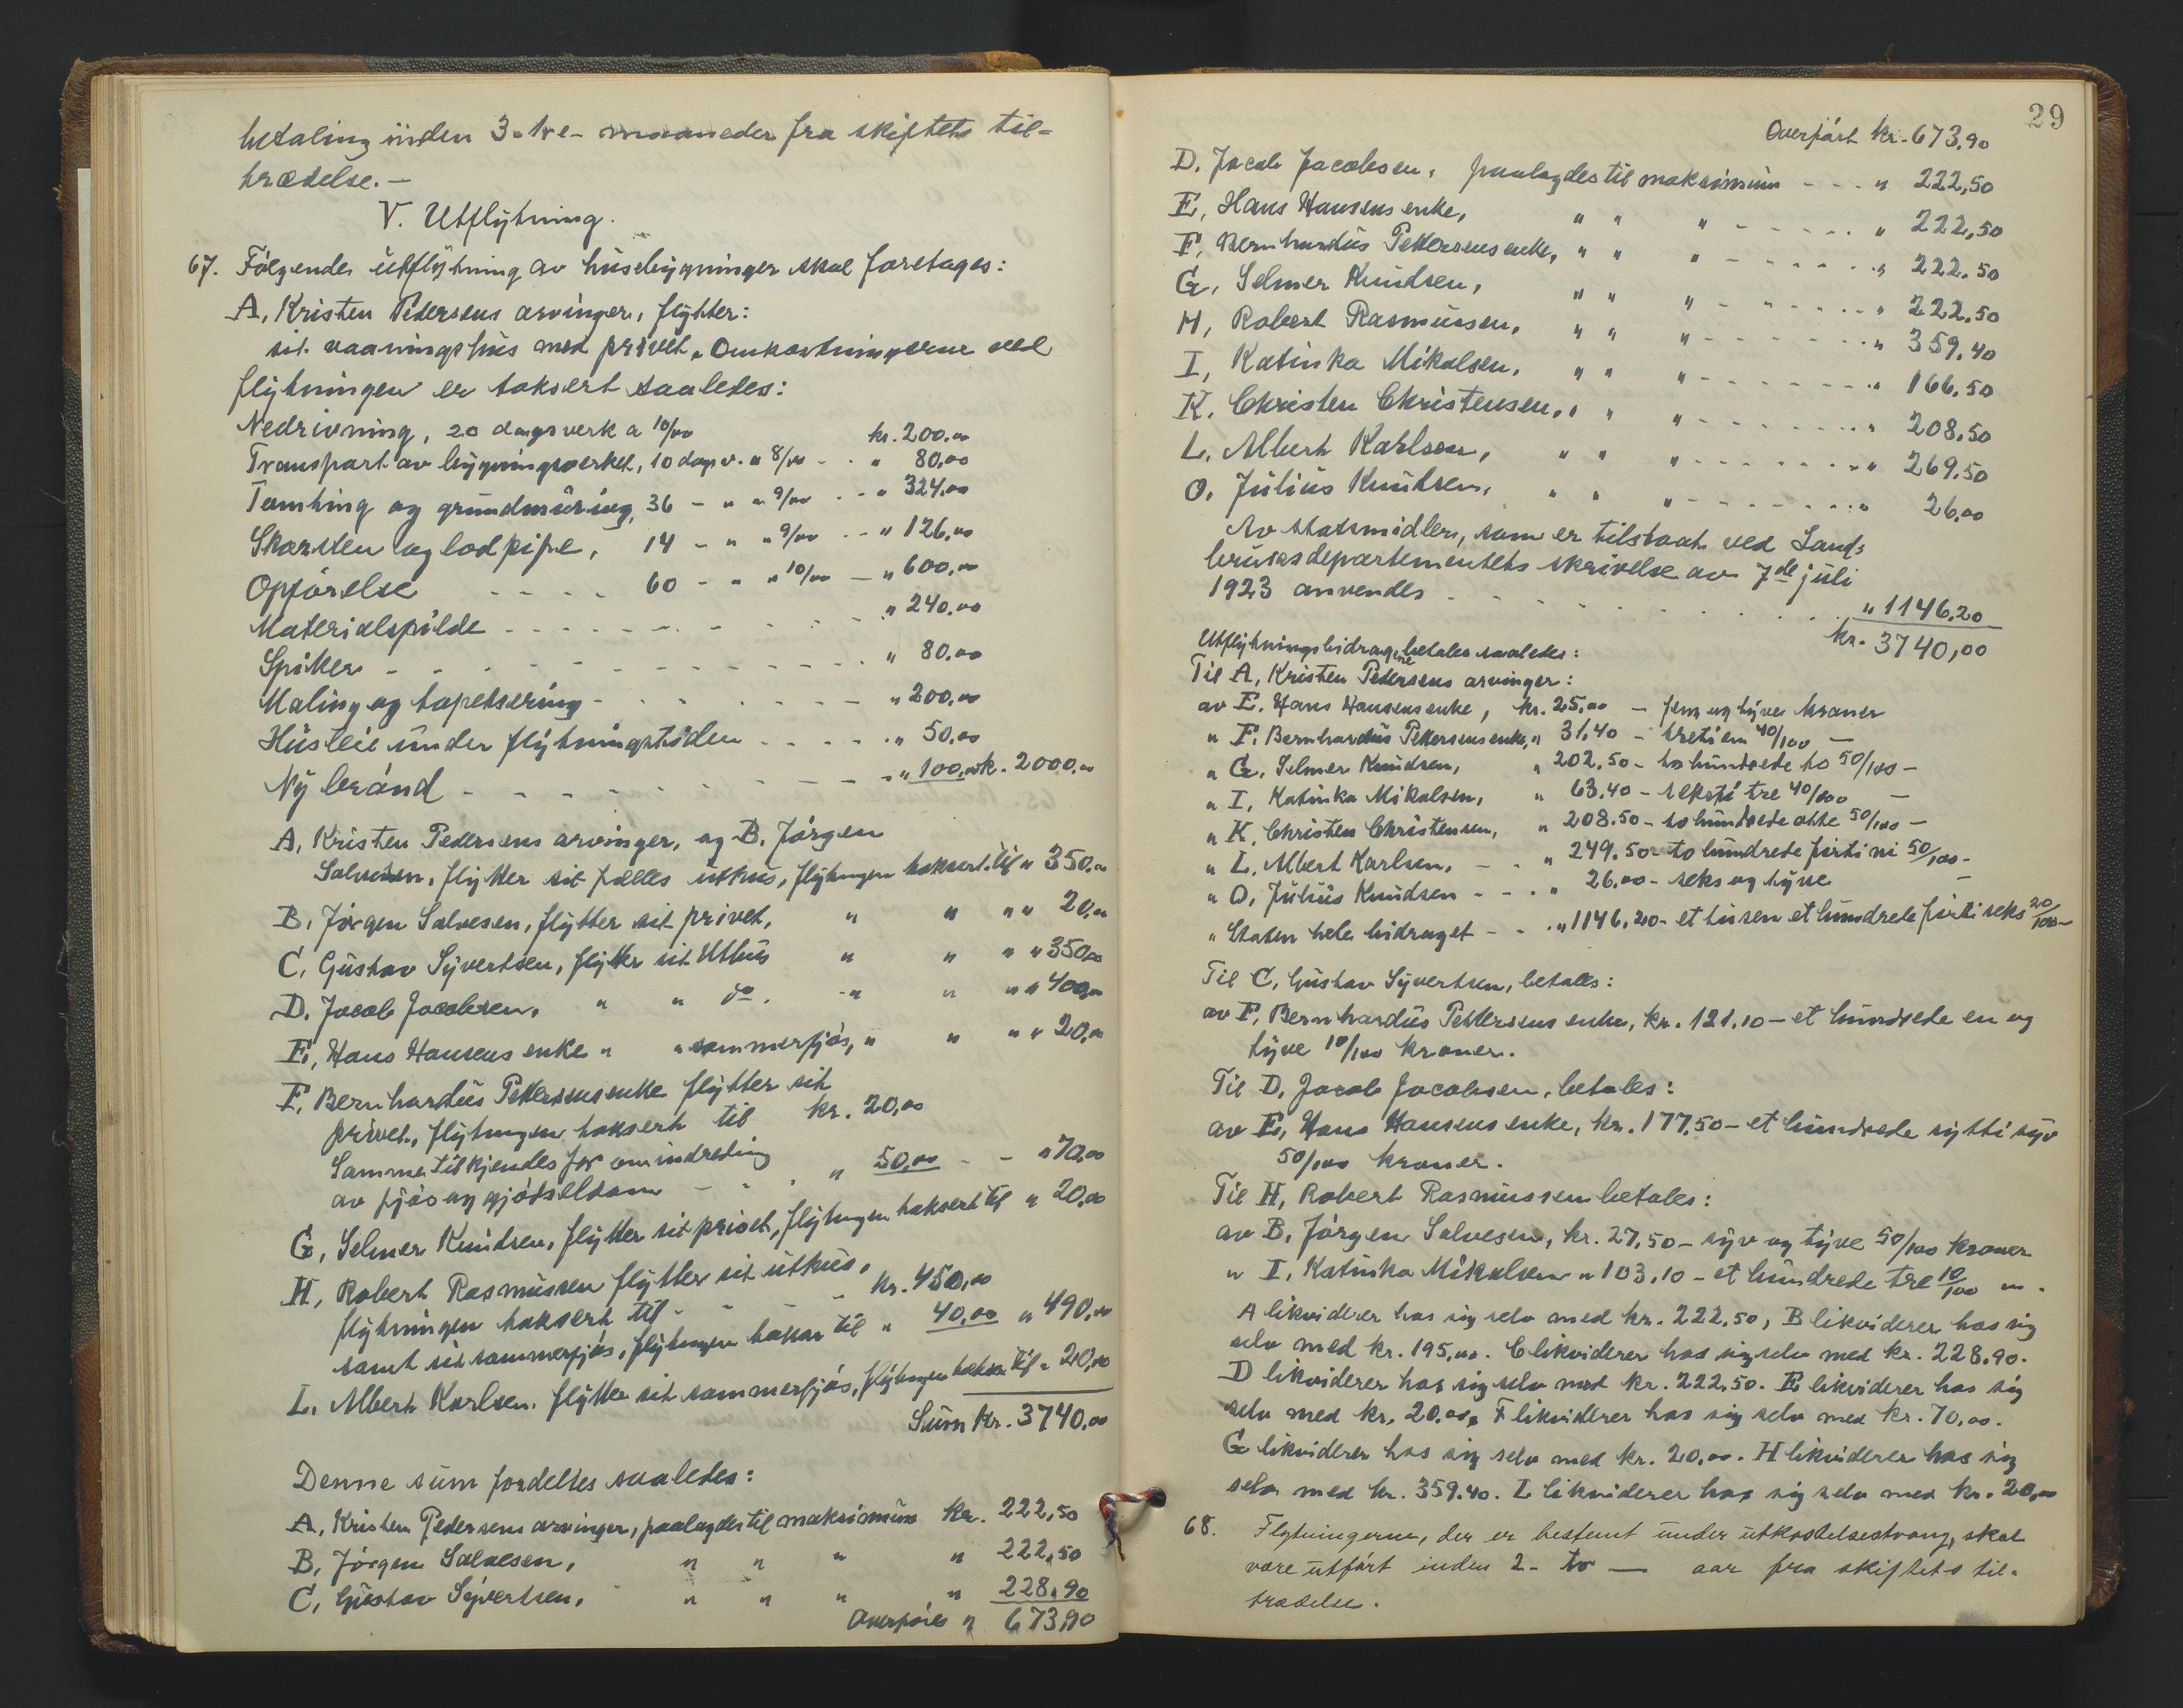 betaling inden 3- tre- maaneder fra skiftets til-
trædelse. -
V. Utflytning.
67. Følgende utflytning av husebygninger skal foretages:
A, Kristen Pedersens arvinger, flytter:
sit vaaningshus med privet. Omkostningerne ved
flytningen er taksert saaledes:
Nedrivning, 20 dagsverk a 10/00 kr. 200,00
Transport av bygningsverket, 10 dagsv. " 8/00 - . " 80,00
Tomting og grundmuring, 36 - " " 9/00 . - " 324,00
Skorsten og lodpipe, 14 - " " 9/00 - - " 126,00
Opførelse - - - - 60 - " " 10/00 - " 600,00
Materialspilde - - - - - - - - - " 240,00
Spiker - - - - - - - - - - - - " 80,00
Maling og tapetsering - - - - - - " 200,00
Husleie under flytningstiden - - - - " 50,00
Ny brønd - - - - - - - - - " 100,00 k. 2000,00
A, Kristen Pedersens arvinger, og B. Jørgen
Salvesen, flytter sit fælles uthus, flytningen taksert til " 350,00
B, Jørgen Salvesen, flytter sit privet, " " " " 20,00
C, Gustav Syvertsen, flytter sit Uthus " " " " 350,00
D. Jacob Jacobsen, " " do. " " " " 400,00
E, Hans Hansens enke " " sommerfjøs, " " " " 20,00
F, Bernhardus Pettersens enke flytter sit
privet, flytningen taksert til kr. 20,00
Samme tilkjendes for omindreding
av fjøs og gjødseldam - - " 50,00 - - " 70,00
G, Selmer Knudsen, flytter sit privet, flytningen taksert til " 20,00
H, Robert Rasmussen flytter sit uthus,
flytningen taksert til - - - kr. 450,00
samt sit sommerfjøs, flytningen takser til " 40,00 " 490,00
L. Albert Karlsen, flytter sit sommerfjøs, flytningen takser til " 20,00
Sum Kr. 3740,00
Denne sum fordeltes saaledes:
A, Kristen Pedersens arvinger, paalagdes til maksimum kr. 222,50
B, Jørgen Salvesen, " " " " 222,50
C, Gustav Syvertsen, " " " " 228,90
Overføres " 673,90
29
Overført kr. 673,90
D. Jacob Jacobsen, paalagdes til maksimum - - - " 222,50
E, Hans Hansens enke, " " " - - - - - " 222,50
F, Bernhardus Pettersens enke, " " " - - - - - " 222,50
G, Selmer Knudsen, " " " - - - - - " 222,50
H, Robert Rasmussen, " " " - - - - - " 359,40
I, Katinka Mikalsen, " " " - - - - - " 166,50
K. Christen Christensen, " " " - - - - - " 208,50
L, Albert Karlsen, " " " - - - - - " 269,50
O, Julius Knudsen, " " " - - - - - " 26,00
Av statsmidler, som er tilstaat ved Land-
bruksdepartementets skrivelse av 7de juli
1923 anvendes - - - - - - - - " 1146,20
kr. 3740,00
Utflytningsbidragene betales saaledes:
Til A, Kristen Pedersens arvinger:
av E, Hans Hansens enke, kr. 25,00 - fem og tyve kroner
" F, Bernhardus Pettersens enke, " 31,40 - tretien 40/100 -
" G, Selmer Knudsen, " 202,50 - tohundrede to 50/100 -
" I, Katinka Mikalsen, " 63,40 - seksti tre 40/100 -
" K, Christen Christensen, " 208,50 - tohundrede otte 50/100 -
" L, Albert Karlsen, - - " 249,50 - to hundrede førti ni 50/100 -
" O, Julius Knudsen - - - " 26,00 - seks og tyve -
" Staten hele bidraget - - " 1146,20 - et tusen et hundrede førti seks 20/100 -
Til C, Gustav Syvertsen, betales:
av F, Bernhardus Pettersens enke, kr. 121,10 - et hundrede en og
tyve 10/100 kroner.
Til D, Jacob Jacobsen, betales:
av E, Hans Hansens enke, kr. 177,50 - et hundrede sytti syv
50/100 kroner.
Til H, Robert Rasmussen betales:
av B, Jørgen Salvesen, kr. 27,50 - syv og tyve 50/100 kroner
" I, Katinka Mikalsen " 103,10 - et hundrede tre 10/100 ".
A likviderer hos sig selv med kr. 222,50, B likviderer hos sig
selv med kr. 195,00. C likviderer hos sig selv med kr. 228,90.
D likviderer hos sig selv med kr. 222,50. E likviderer hos sig
selv med kr. 20,00, F likviderer hos sig selv med kr. 70,00.
G likviderer hos sig selv med kr. 20,00. H likviderer hos sig
selv med kr. 359,40. L likviderer hos sig selv med kr. 20,00
68. Flytningerne, der er bestemt under utkastelsestvang, skal
være utført inden 2- to - aar fra skiftets til-
trædelse.